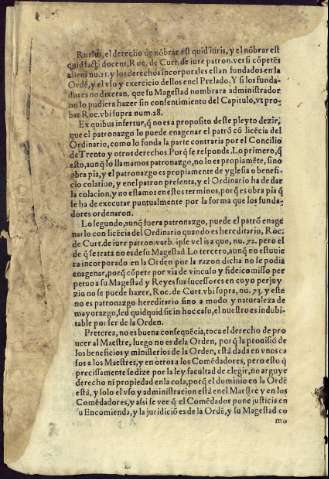 Rursus, el derecho de nõbrar est quid iuris, y el nõbrar est
quid facti, docent, Roc. de Curt. de iure patron. ver. si cõpetẽs
nu. 21. y los derechos incorporales estan fundados en la
Ordẽ, y el vso y exercicio dellos en el Prelado. Y si los funda-
dores no dixeran, que su Magestad nombrara administrador
no lo pudiera hazer sin consentimiento del Capitulo, vt pro-
bat Roc. vbi supra num. 28.
Ex quibus infertur, q̃ no es a proposito deste pleyto dezir,
que el patronazgo lo puede enagenar el patrõ cõ licẽcia del
Ordinario, como lo funda la parte contraria por el Concilio
de Trento y otros derechos. Porq̃ se responde. Lo primero, q̃
esto, aunq̃ lo llamamos patronazgo, no lo es propiamẽte, sino
obra pia, y el patronazgo es propiamente de yglesia o benefi-
cio colatiuo, y en el patron presenta, y el Ordinario ha de dar
la colacion, y no estamos en estos terminos, porq̃ es obra pia q̃
se ha de executar puntualmente por la forma que los funda-
dores ordenaron.
Lo segundo, aunq̃ fuera patronazgo, puede el patrõ enage-
narlo con licẽcia del Ordinario quando es hereditario, Roc.
de Curt. de iure patron. varb. ipse vel is a quo, nu. 72. pero el
de q̃ se trata no es de su Magestad. Lo tercero, aunq̃ no estuuie
ra incorporado en la Orden por la razon dicha no se podia
enagenar, porq̃ cõpete por via de vinculo y fideicõmisso per
petuo a su Magestad y Reyes sus sucessores en cuyo perjuy-
zio no se puede hazer, Roc. de Curt. vbi supra, nu. 73. y este
no es patronazgo hereditario sino a modo y naturaleza de
mayorazgo, sed quidquid sit in hoc casu, el nuestro es indubi-
table por ser de la Orden.
Preterea, no es buena consequẽcia, toca el derecho de pro-
ueer al Maestre, luego no es de la Orden, porq̃ la prouisiõ de
los beneficios y ministerios de la Orden, està dada en vnos ca
sos a los Maestres, y en otros a los Comẽdadores, pero esto q̃
precissamente se dize por la ley facultad de elegir, no arguye
derecho ni propiedad en la cosa, porq̃ el dominio en la Ordẽ
està, y solo el vso y administracion està en el Maestre y en los
Comẽdadores, y assi se vee q̃ el Comẽdador pone justicia en
su Encomienda, y la juridicio es de la Ordẽ, y su Magestad co
mo